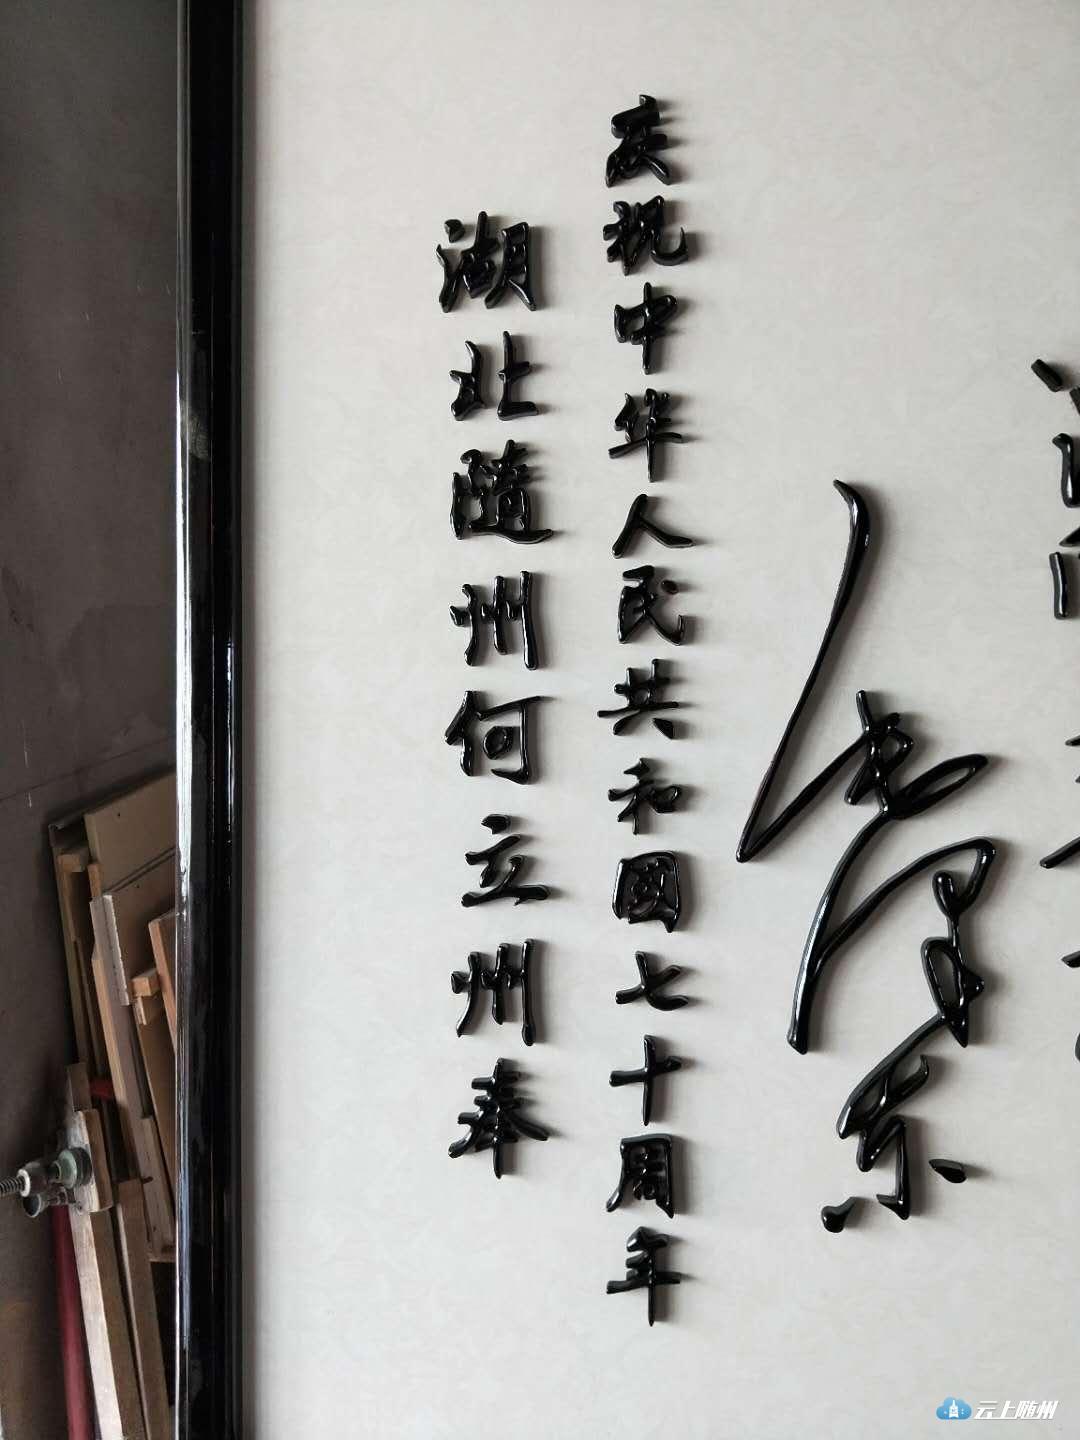 毛泽东
庆祝中华人民共和國七十周年
湖北隨州何立州奉
云上随州